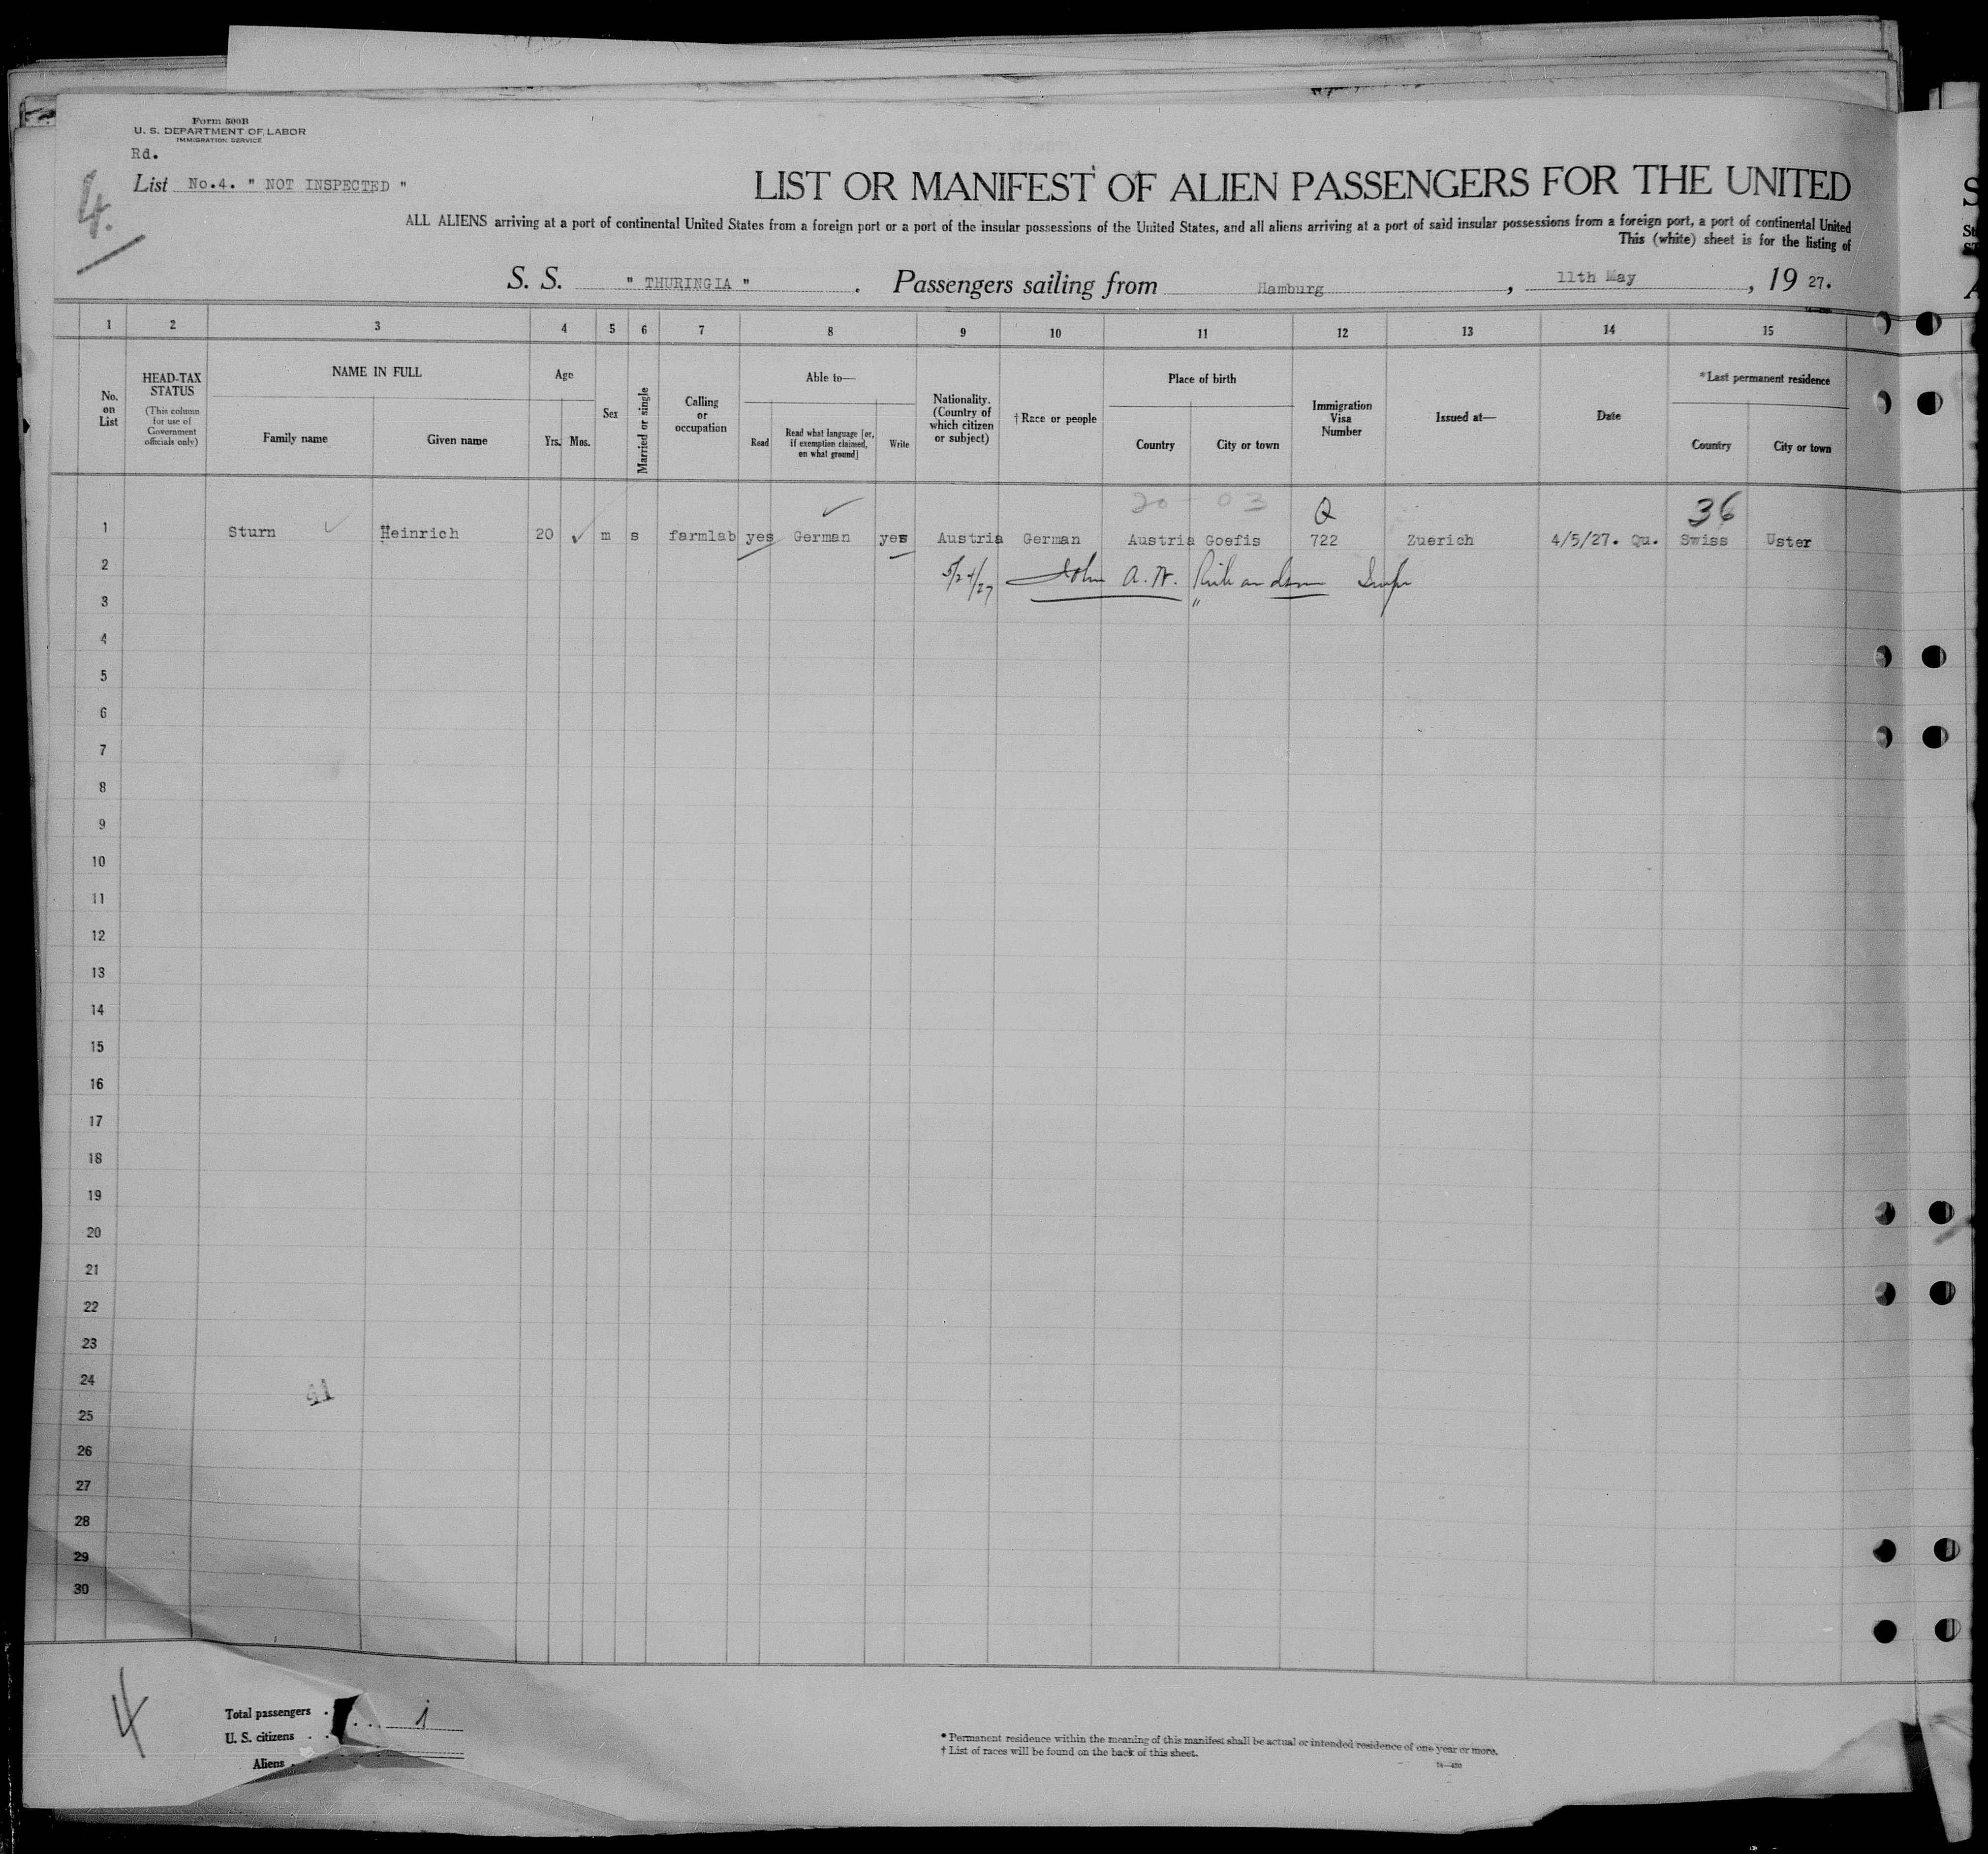 Form 500B
U. S. DEPARTMENT OF LABOR
IMMIGRATION SERVICE
Rd.
4.
List No.4. " NOT INSPECTED "
LIST OR MANIFEST OF ALIEN PASSENGERS FOR THE UNITED
ALL ALIENS arriving at a port of continental United States from a foreign port or a port of the insular possessions of the United States, and all aliens arriving at a port of said insular possessions from a foreign port, a port of continental United
This (white) sheet is for the listing of
S. S. " THURINGIA " . Passengers sailing from Hamburg , 11th May , 19 27.
1 2 3 4 5 6 7 8 9 10 11 12 13 14 15
No. on List
HEAD-TAX STATUS
(This column for use of Government officials only)
NAME IN FULL
Family name
Given name
Age
Yrs. Mos.
Sex
Married or single
Calling or occupation
Able to—
Read
Read what language [or, if exemption claimed, on what ground]
Write
Nationality. (Country of which citizen or subject)
†Race or people
Place of birth
Country
City or town
Immigration Visa Number
Issued at—
Date
*Last permanent residence
Country
City or town
20 - 03 Q 36
1 Sturn Heinrich 20 m s farmlab yes German yes Austria German Austria Goefis 722 Zuerich 4/5/27. Qu. Swiss Uster
2 5/24/27 John A. W. Richardson
3
4
5
6
7
8
9
10
11
12
13
14
15
16
17
18
19
20
21
22
23
24
25
26
27
28
29
30
4
Total passengers . . . . 1
U. S. citizens . .
Aliens .
* Permanent residence within the meaning of this manifest shall be actual or intended residence of one year or more.
† List of races will be found on the back of this sheet.